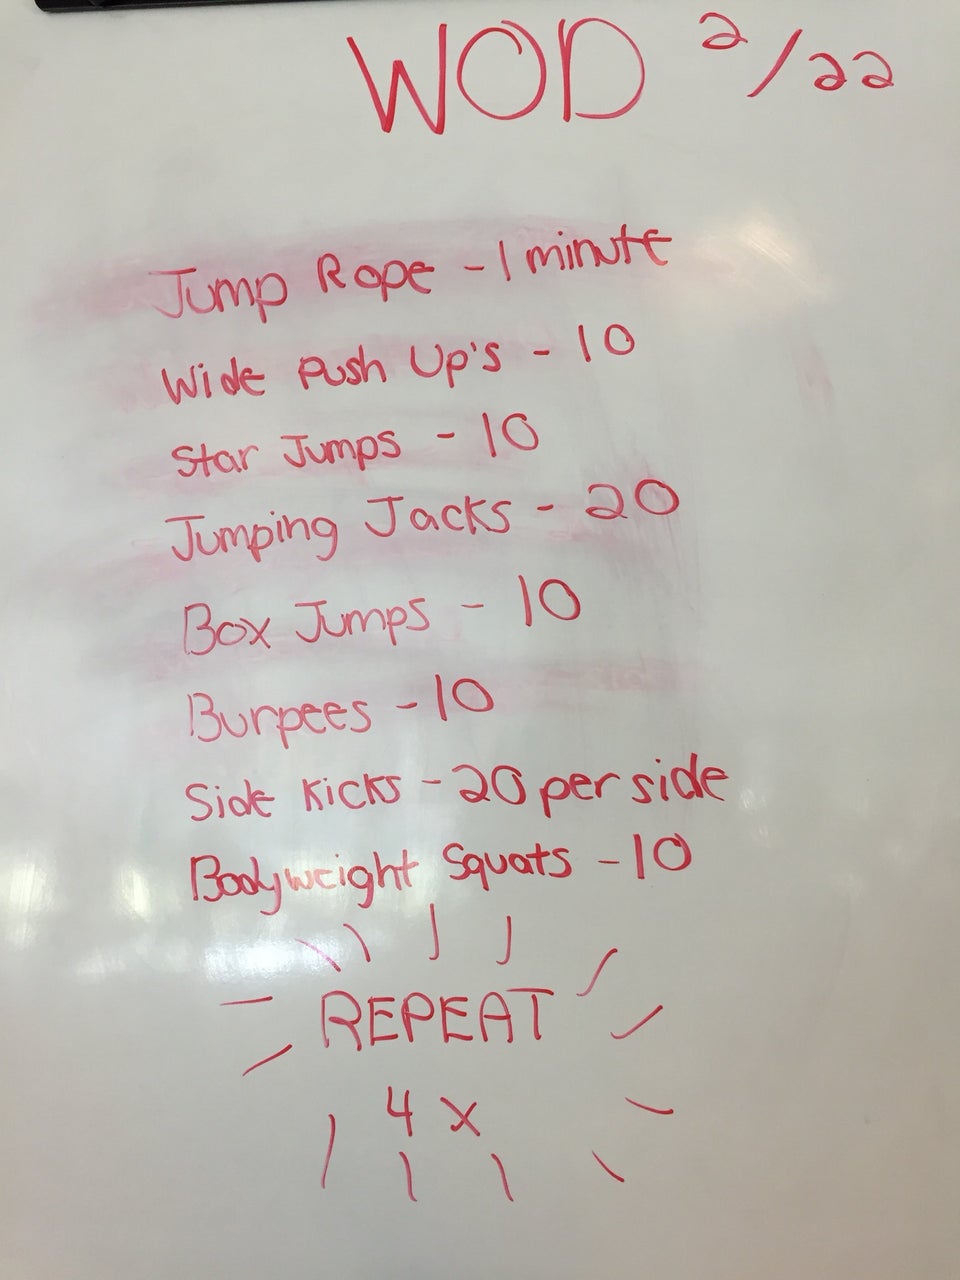 WOD 2/22
Jump Rope - 1 minute
Wide Push Up's - 10
Star Jumps - 10
Jumping Jacks - 20
Box Jumps - 10
Burpees - 10
Side Kicks - 20 per side
Bodyweight Squats - 10
REPEAT
4 x